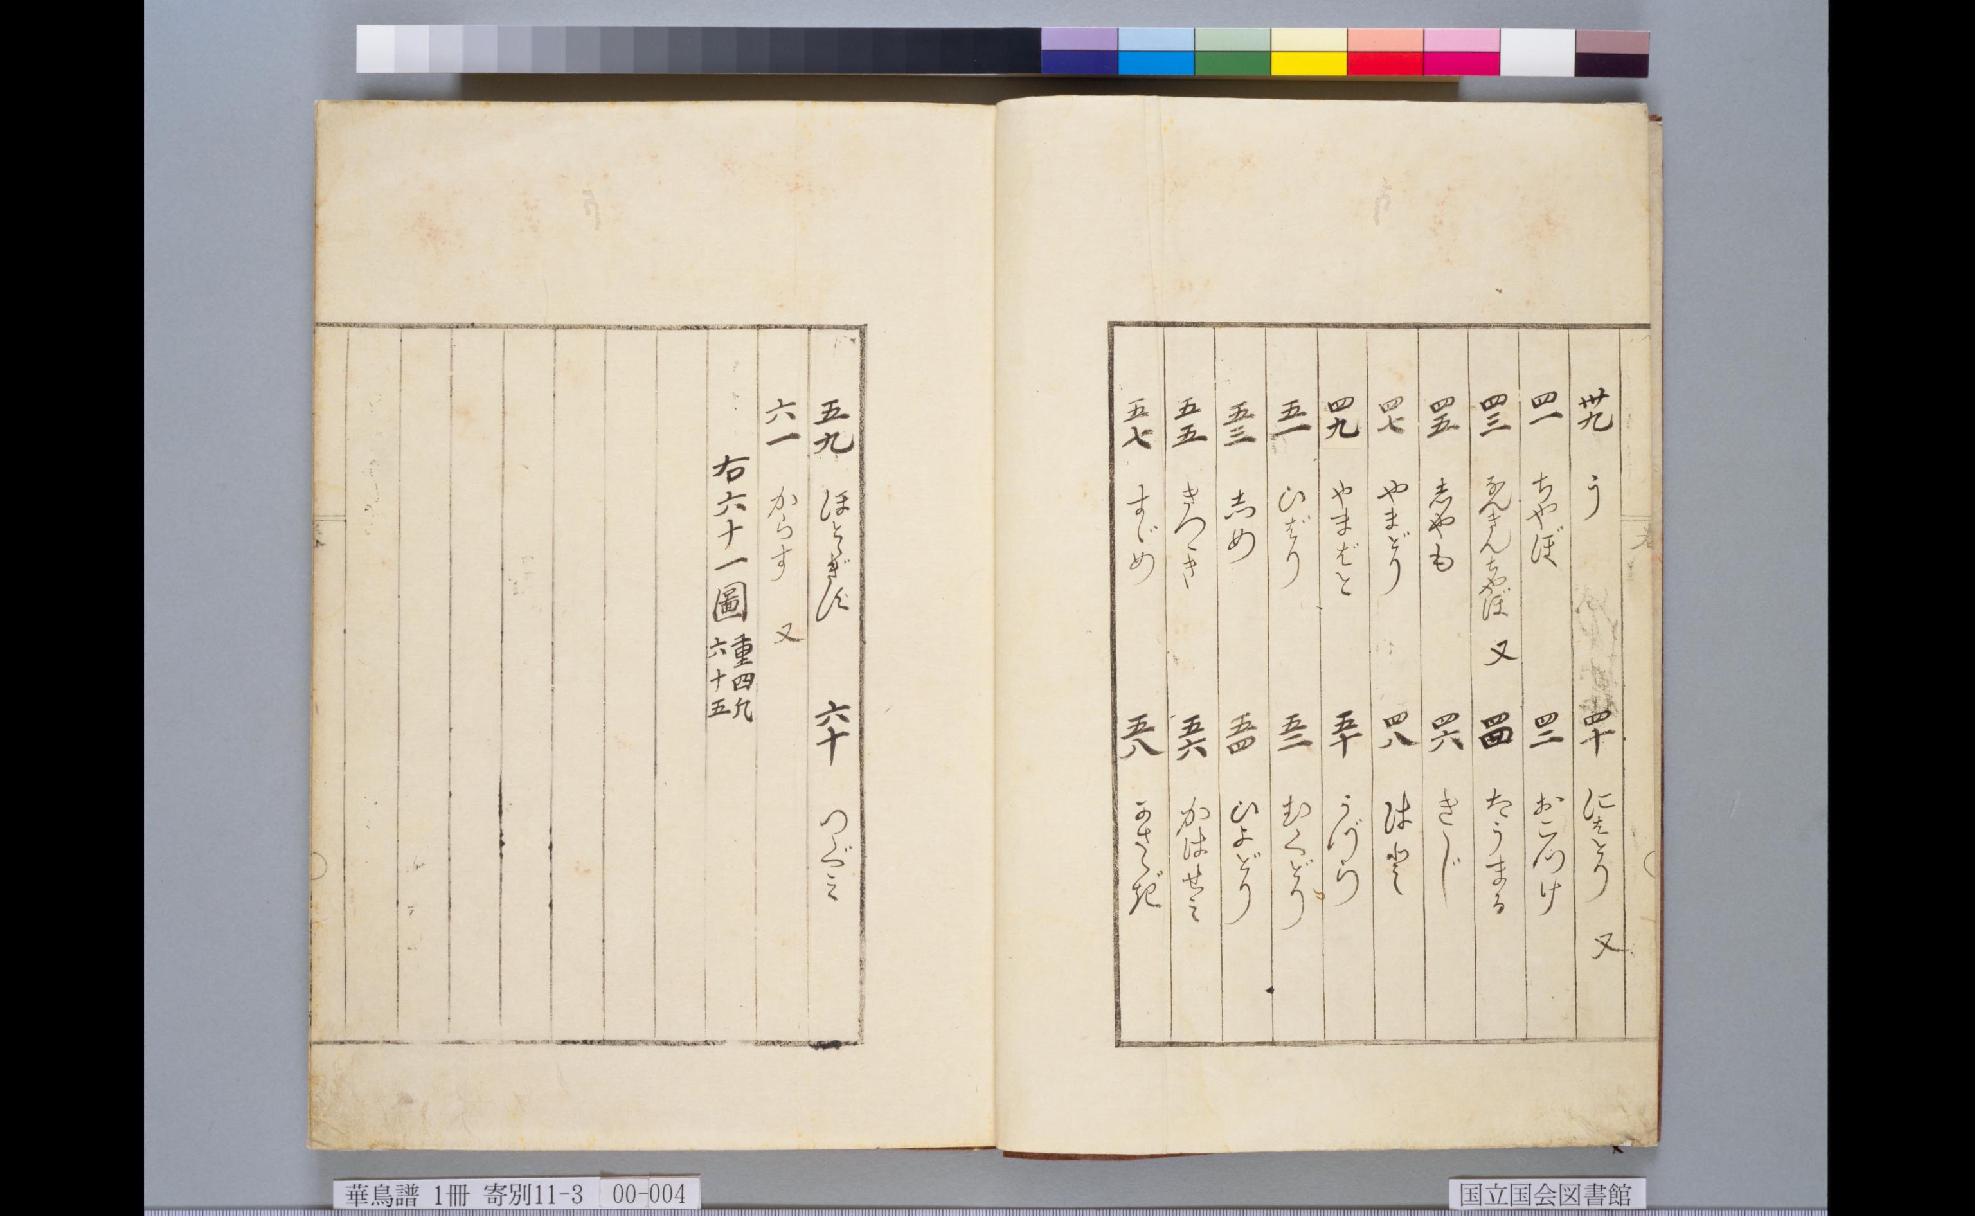 卅九 う 四十 にはとり 又
四一 ちやぼ 四二 おこつけ
四三 なんきんちやぼ 又 四四 たうまる
四五 志やも 四六 きじ
四七 やまどり 四八 はと
四九 やまばと 五十 うづら
五一 ひばり 五二 むくどり
五三 志め 五四 ひよどり
五五 きつゝき 五六 かはせミ
五七 すゞめ 五八 かさゝぎ
五九 ほとゝぎす 六十 つぐミ
六一 からす 又
右六十一圖 重四凡
六十五
華鳥譜 1冊 寄別11-3 00-004
国立国会図書館